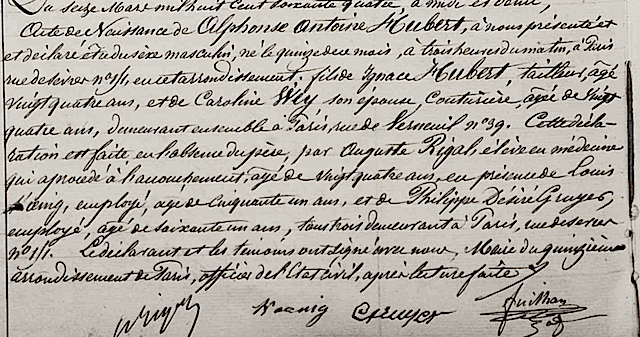 Du seize Mars mil huit cent soixante quatre, à midi et demi,
Acte de Naissance de Alphonse Antoine Hubert, à nous présenté et
et déclaré être du sexe masculin, né le quinze de ce mois, à trois heures du matin, à Paris
rue de Sèvres no 91, en cet arrondissement, fils de Ignace Hubert, tailleur, âgé
Vingt quatre ans, et de Caroline son épouse, couturière, âgée de Vingt
quatre ans, demeurant ensemble à Paris, rue de Verneuil no 39. Cette décla-
ration est faite, en l'absence du père, par Auguste Rigal, élève en médecine
qui a procédé à l'accouchement, âgé de Vingt quatre ans, en présence de Louis
employé, âgé de Cinquante un ans, et de Philippe Désiré Gruyer,
employé, âgé de soixante un ans, tous trois demeurant à Paris, rue de Sèvres
no 91. Le déclarant et les témoins ont signé avec nous, Maire du quinzième
arrondissement de Paris, officier de l'Etat civil, après lecture faite
Koenig Gruyer